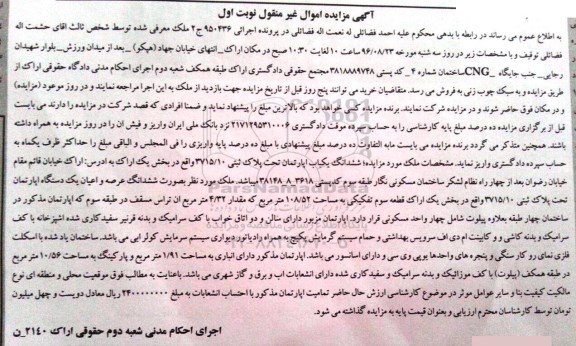 آگهی مزایده اموال غیر منقول نوبت اول
به اطلاع عموم می رساند در رابطه با بدهی محکوم علیه احمد فضائلی له نعمت اله فضائلی در پرونده اجرائی ۹۵۰۴۳۶ ج۲ ملک معرفی شده توسط شخص ثالث اقای حشمت اله
فضائلی توقیف و با مشخصات زیر در روز سه شنبه مورخه ۹۶/۰۸/۲۳ ساعت ۱۰ لغایت ۱۰:۳۰ صبح در مکان اراک_انتهای خیابان جهاد (هپکو) _بعد از میدان ورزش_بلوار شهیدان
رجایی_جنب جایگاه CNG_ساختمان شماره ۴_کد پستی ۳۸۱۸۸۸۹۷۴۸ مجتمع حقوقی دادگستری اراک طبقه همکف شعبه دوم اجرای احکام مدنی دادگاه حقوقی اراک از
طریق مزایده و به سبک چوب زنی به فروش می رسد. متقاضیان خرید می توانند پنج روز قبل از تاریخ مزایده جهت بازدید از ملک به این اجرا مراجعه نمایند و در روز موعود (مزایده)
و در مکان فوق حاضر شوند و در مزایده شرکت نمایند. برنده مزایده کسی خواهد بود که بالاترین مبلغ را پیشنهاد نماید و ضمنا افرادی که قصد شرکت در مزایده را دارند می بایست
قبل از برگزاری مزایده ده درصد مبلغ پایه کارشناسی را به حساب سپرده موقت دادگستری ۲۱۷۱۲۹۵۳۱۰۰۰۶ نزد بانک ملی ایران واریز و فیش ان را در روز مزایده به همراه داشته
باشند. همچنین متذکر می گردد برنده مزایده می بایست مابه التفاوت ده درصد مبلغ پیشنهادی با مبلغ ده درصد پایه واریزی را فی المجلس و الباقی مبلغ را حداکثر ظرف یکماه به
حساب سپرده دادگستری واریز نماید. مشخصات ملک مورد مزایده: ششدانگ یکباب اپارتمان تحت پلاک ثبتی ۳۷۱۵/۱۰ واقع در بخش یک اراک به ادرس: اراک خیابان قائم مقام
خیابان رضوان بعد از چهار راه نظام لشکر ساختمان مسکونی نگار طبقه سوم کدپستی ۳۸۱۴۸۰۸-۳۶۱۸ میباشد. ملک مورد نظر بصورت ششدانگ عرصه و اعیان یک دستگاه اپارتمان
تحت پلاک ثبتی ۳۷۱۵/۱۰ واقع در بخش یک اراک قطعه سوم تفکیکی به مساحت ۱۰۸/۵۲ متر مربع که مقدار ۴/۳۲ متر مربع ان تراس مسقف در طبقه سوم که اپارتمان مذکور در
ساختمان چهار طبقه بعلاوه پیلوت شامل چهار واحد مسکونی قرار دارد. اپارتمان مزبور دارای سالن و دو اتاق خواب با کف سرامیک و بدنه قرنیز سفیدکاری شده اشپزخانه با کف
سرامیک و بدنه کاشی و و کابینت ام دی اف سرویس بهداشتی و حمام سیستم گرمایش پکیج به همراه رادیاتور دیواری سیستم سرمایش کولر ابی می باشد. ساختمان یاد شده با اسکلت
فلزی نمای رو کار سنگی و پنجره های واحدها یوپی وی سی و دارای اسانسور می باشد. اپارتمان مذکور دارای انباری به مساحت ۱/۹۱ متر مربع و پارکینگ به مساحت ۱۰/۵۶ متر مربع
در طبقه همکف (پیلوت) با کف موزائیک و بدنه سرامیک و سفید کاری شده دارای انشعابات اب و برق و گاز شهری می باشد. باعنایت به مطالب فوق موقعیت محلی و منطقه ای نوع
مالکیت کیفیت بنا و سایر عوامل موثر در موضوع کارشناسی ارزش حال حاضر تمامیت اپارتمان مذکور با احتساب انشعابات به مبلغ ۲۴۰۰۰۰۰۰۰۰ ریال معادل دویست و چهل میلیون
تومان توسط کارشناسان محترم ارزیابی و بعنوان قیمت پایه به مزایده گذاشته می شود.
اجرای احکام مدنی شعبه دوم حقوقی اراک ۲۱۴۰_ن